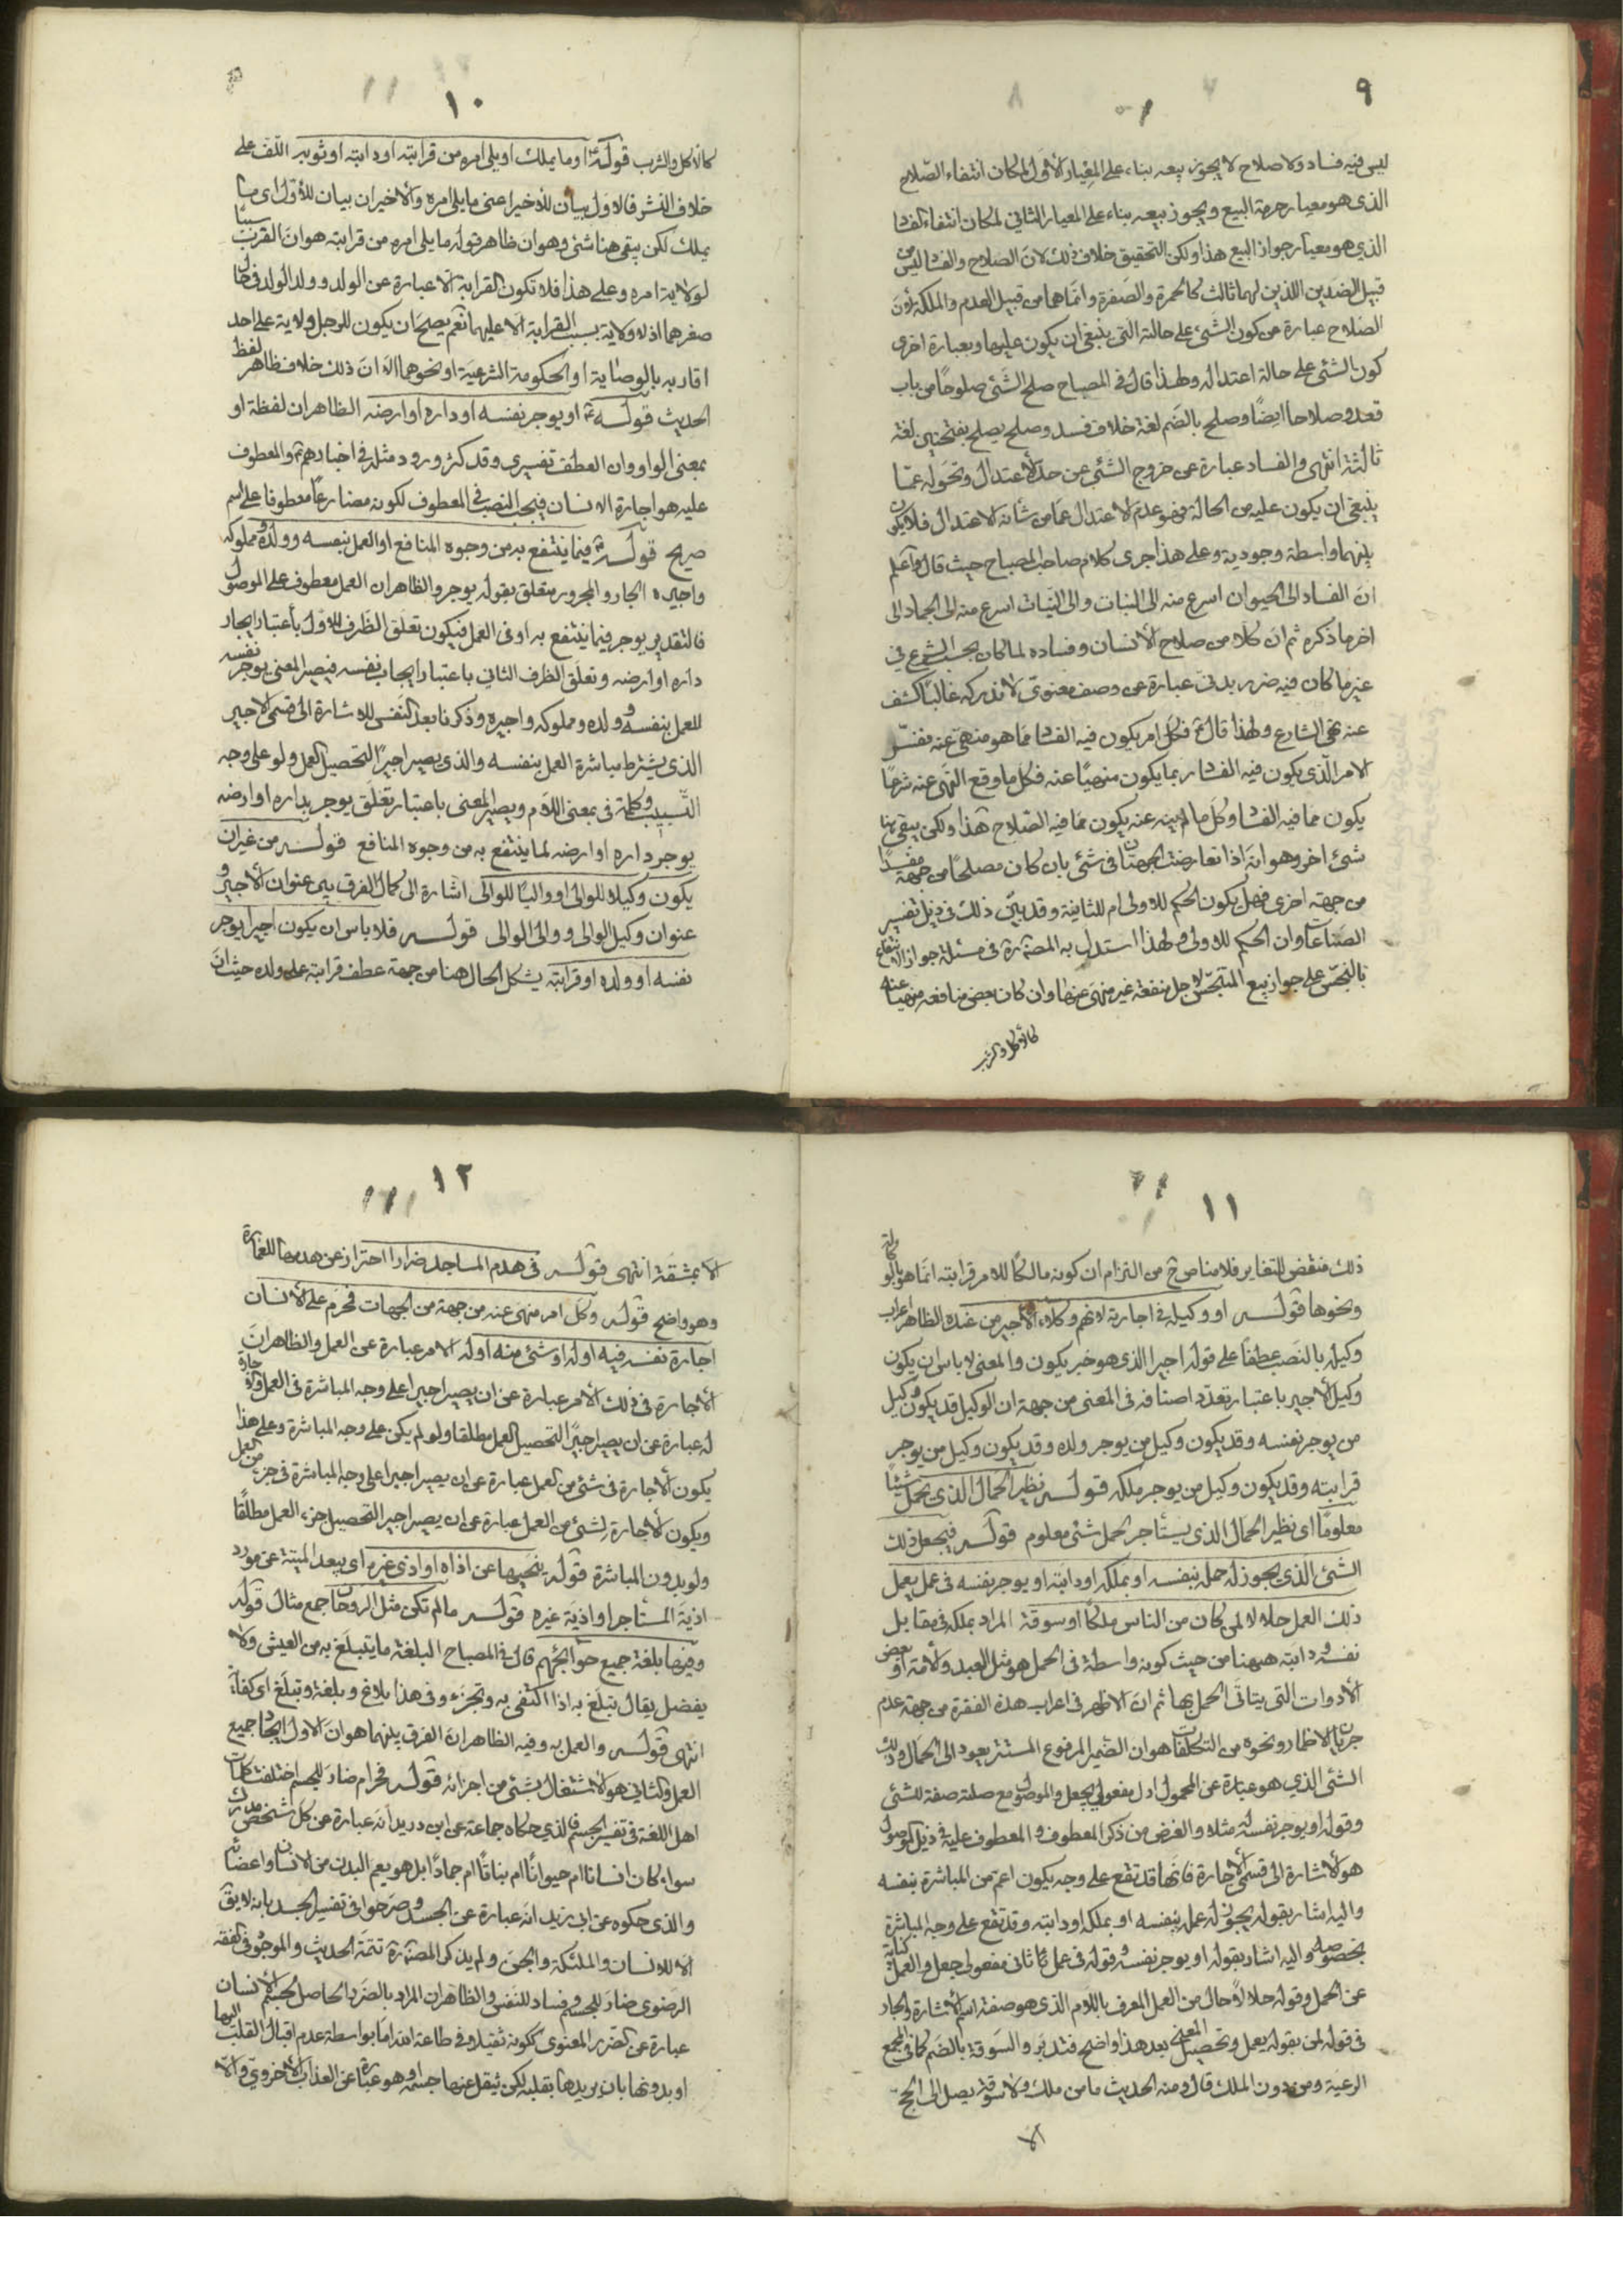 ٩
ليس فيه فساد ولا صلاح لا يجوز بيعه بناء على المعيار الأول لمكان انتفاء الصّلاح
الذى هو معيار حرمة البيع ويجوز بيعه بناء على المعيار الثانى لمكان انتفاء الفسا
الذى هو معيار جواز البيع هذا ولكن التحقيق خلاف ذلك لان الصلاح والفسا ليس من
قبيل الضدين اللذين لهما ثالث كالحمرة والصفرة وانما هما من قبيل العدم والملكة لأن
الصلاح عبارة عن كون الشئ على حالته التى ينبغى ان يكون عليها وبعبارة اخرى
كون الشئ على حالة اعتداله ولهذا قال فى المصباح صلح الشئ صلوحًا من باب
قعد وصلاحا ايضًا وصلح بالضم لغة خلاف فسد وصلح يصلح بفتحتين لغة
ثالثة انتهى والفساد عبارة عن خروج الشئ عن حد الأعتدال وتحوله عمّا
ينبغى ان يكون عليه من الحالة فهو عدم الاعتدال عما من شأنه الاعتدال فلا يكون
بينهما واسطة وجودية وعلى هذا جرى كلام صاحب المصباح حيث قال واعلم
ان الفساد الى الحيوان اسرع منه الى النبات والى النبات اسرع منه الى الجماد الى
اخر ما ذكره ثم ان كلا من صلاح الأنسان وفساده لما كان بحسب الشرع فى
غير ما كان فيه ضرر بدنى عبارة عن وصف معنوى لا ندركه غالبا كشف
عنه نهى الشارع ولهذا قال ع فكل امر يكون فيه الفسا مما هو منهى عنه ففسّر
الامر الذى يكون فيه الفسا بما يكون منهيًا عنه فكل ما وقع النهى عنه شرعًا
يكون مما فيه الفسا وكل ما لم ينه عنه يكون مما فيه الصلاح هذا ولكن يبقى هنا
شئ اخر وهو انه اذا تعارضت الجهتان فى شئ بان كان مصلحًا من جهة مفسدًا
من جهة اخرى فهل يكون الحكم للاولى ام للثانية وقد بيّن ذلك فى ذيل تفسير
الصناعات وان الحكم للاولى ولهذا استدل به المصنف ره فى مسئلة جواز الانتفاع
بالنجس على جواز بيع المتنجس لاجل منفعة غير منهى عنها وان كان بعض منافعه منهيا عنه
كالأكل والشرب
١٠
كالأكل والشرب قوله ع او ما يملك او يلى امره من قرابته او دابته او ثوبه اللف على
خلاف النشر فالاول بيان للأخير اعنى ما يلى امره والأخيران بيان للأول اى ما
يملك لكن يبقى هنا شئ وهو ان ظاهر قوله ما يلى امره من قرابته هو ان القرابة سببًا
لولاية امره وعلى هذا فلا تكون القرابة الا عبارة عن الولد وولد الولد فى حال
صغرهما اذ لا ولاية بسبب القرابة الا عليهما نعم يصلح ان يكون للرجل ولاية على احد
اقاربه بالوصاية او الحكومة الشرعية او نحوهما الا ان ذلك خلاف ظاهر لفظ
الحديث قوله ع او يوجر نفسه او داره او ارضه الظاهر ان لفظة او
بمعنى الواو وان العطف تفسيرى وقد كثر ورود مثله فى اخبارهم ع والمعطوف
عليه هو اجارة الانسان فيجب النصب فى المعطوف لكونه مضارعًا معطوفا على اسم
صريح قوله ع فيما ينتفع به من وجوه المنافع او العمل بنفسه وولده ومملوكه
واجيره الجار والمجرور متعلق بقوله يوجر والظاهر ان العمل معطوف على الموصول
فالتقدير يوجر فيما ينتفع به او فى العمل فيكون تعلق الظرف الاول بأعتبار ايجار
داره او ارضه وتعلق الظرف الثانى باعتبار ايجاب نفسه فيصير المعنى يوجر نفسه
للعمل بنفسه وولده ومملوكه واجيره وذكر ما بعد النفس للاشارة الى قسمى الاجير
الذى يشترط مباشرة العمل بنفسه والذى يصير اجيرًا لتحصيل العمل ولو على وجه
التّسبيب وكلمة فى بمعنى اللام ويصير المعنى باعتبار تعلق يوجر بداره او ارضه
يوجر داره او ارضه لما ينتفع به من وجوه المنافع قوله من غير ان
يكون وكيلا للوالى او واليًا للوالى اشارة الى كمال الفرق بين عنوان الأجير و
عنوان وكيل الوالى ووالى الوالى قوله فلا باس ان يكون اجيرا يوجر
نفسه او ولده او قرابته يشكل الحال هنا من جهة عطف قرابته على ولده حيث ان
١١
ذلك مقتض للتغاير فلا مناص ح من التزام ان كونه مالكًا للامر قرابته انما هو بالوكالة
ونحوها قوله او وكيله فى اجارته لانهم وكلاء الأجير من عنده الظاهر اعراب
وكيله بالنصب عطفا على قوله اجيرا الذى هو خبر يكون والمعنى لا باس ان يكون
وكيل الأجير باعتبار تعدد اصنافه فى المعنى من جهة ان الوكيل قد يكون وكيل
من يوجر نفسه وقد يكون وكيل من يوجر ولده وقد يكون وكيل من يوجر
قرابته وقد يكون وكيل من يوجر ملكه قوله نظير الحمال الذى يحمل شيئًا
معلومًا اى نظير الحمال الذى يستأجر لحمل شئ معلوم قوله فيجعل ذلك
الشئ الذى يجوز له حمله بنفسه او بملكه او دابته او يوجر نفسه فى عمل يعمل
ذلك العمل حلالا لمن كان من الناس ملكًا او سوقة المراد بملكه فى مقابل
نفسه ودابته هيهنا من حيث كونه واسطة فى الحمل هو مثل العبد والأمة او بعض
الأدوات التى يتأتى الحمل بها ثم ان الاظهر فى اعراب هذه الفقرة من جهة عدم
جريان الاظمار ونحوه من التكلفات هو ان الضمير المرفوع المستتر يعود الى الحمال وذلك
الشئ الذى هو عبارة عن المحمول اول مفعولى يجعل والموصول مع صلته صفة للشئ
وقوله او يوجر نفسه له مثلا والغرض من ذكر المعطوف والمعطوف عليه فى ذيل الموصول
هو الأشارة الى قسمى الأجارة فانها قد تقع على وجه يكون اعم من المباشرة بنفسه
واليه اشار بقوله يجوز له عمله بنفسه او بملكه او دابته وقد تقع على وجه المباشرة
بخصوصه واليه اشار بقوله او يوجر نفسه وقوله فى عمل ثانى مفعولى جعل والعمل كناية
عن الحمل وقوله حلالا حال من العمل المعرف باللام الذى هو صفة اسم الاشارة والجار
فى قوله لمن بقوله يعمل وتحصيل المعنى بعد هذا واضح فتدبر والسوقة بالضم كما فى المجمع
الرعية ومن دون الملك قال ومنه الحديث ما من ملك ولا سوقة يصل الى الحج
الا
١٢
الا بمشقة انتهى قوله فى هدم المساجد ضرارا احتراز عن هدمها للعمارة
وهو واضح قوله وكل امر منهى عنه من جهة من الجهات فمحرم على الأنسان
اجارة نفسه فيه او له او شئ منه او له الامر عبارة عن العمل والظاهر ان
الأجارة فى ذلك الأمر عبارة عن ان يصير اجيرا على وجه المباشرة فى العمل والأجارة
له عبارة عن ان يصير اجيرًا لتحصيل العمل مطلقا ولو لم يكن على وجه المباشرة وعلى هذا
يكون الأجارة فى شئ من العمل عبارة عن ان يصير اجيرا على وجه المباشرة فى جزء من العمل
ويكون الاجارة لشئ من العمل عبارة عن ان يصير اجيرا لتحصيل جزء العمل مطلقًا
ولو بدون المباشرة قوله ينحيها عن اذاه او اذى غيره اى يبعد الميتة عن مورد
اذية المستأجر او اذية غيره قوله ما لم تكن مثل الروحانى جمع مثال قوله
وفيها بلغة جميع حوائجهم قال فى المصباح البلغة ما يتبلغ به من العيش ولا
يفضل يقال تبلغ به اذا اكتفى به وتجزء وفى هذا بلاغ وبلغة وتبلغ اى كفاية
انتهى قوله والعمل به وفيه الظاهر ان الفرق بينهما هو ان الاول ايجاد جميع
العمل والثانى هو الأشتغال بشئ من اجزائه قوله فحرام ضار للجسم اختلفت كلمات
اهل اللغة فى تفسير الجسم فالذى حكاه جماعة عن ابن دريد انه عبارة عن كل شخص مدرك
سواء كان انسانا ام حيوانًا ام نباتًا ام جمادًا بل هو يعم البدن من الانسان واعضائه
والذى حكوه عن ابى زيد انه عبارة عن الجسد وصرحوا فى تفسير الجسد بانه لا يقال
الا للانسان والملئكة والجن ولم يذكر المصنف ره تتمة الحديث والموجود فى الفقه
الرضوى ضار للجسم وفساد للنفس والظاهر ان المراد بالضرر الحاصل لجسم الأنسان
عبارة عن الضرر المعنوى ككونه ثقيلا فى طاعة الله اما بواسطة عدم اقبال القلب اليها
او بدونها بان يريدها بقلبه لكن يثقل عنها جسمه او هو عبارة عن العذاب الأخروى والا